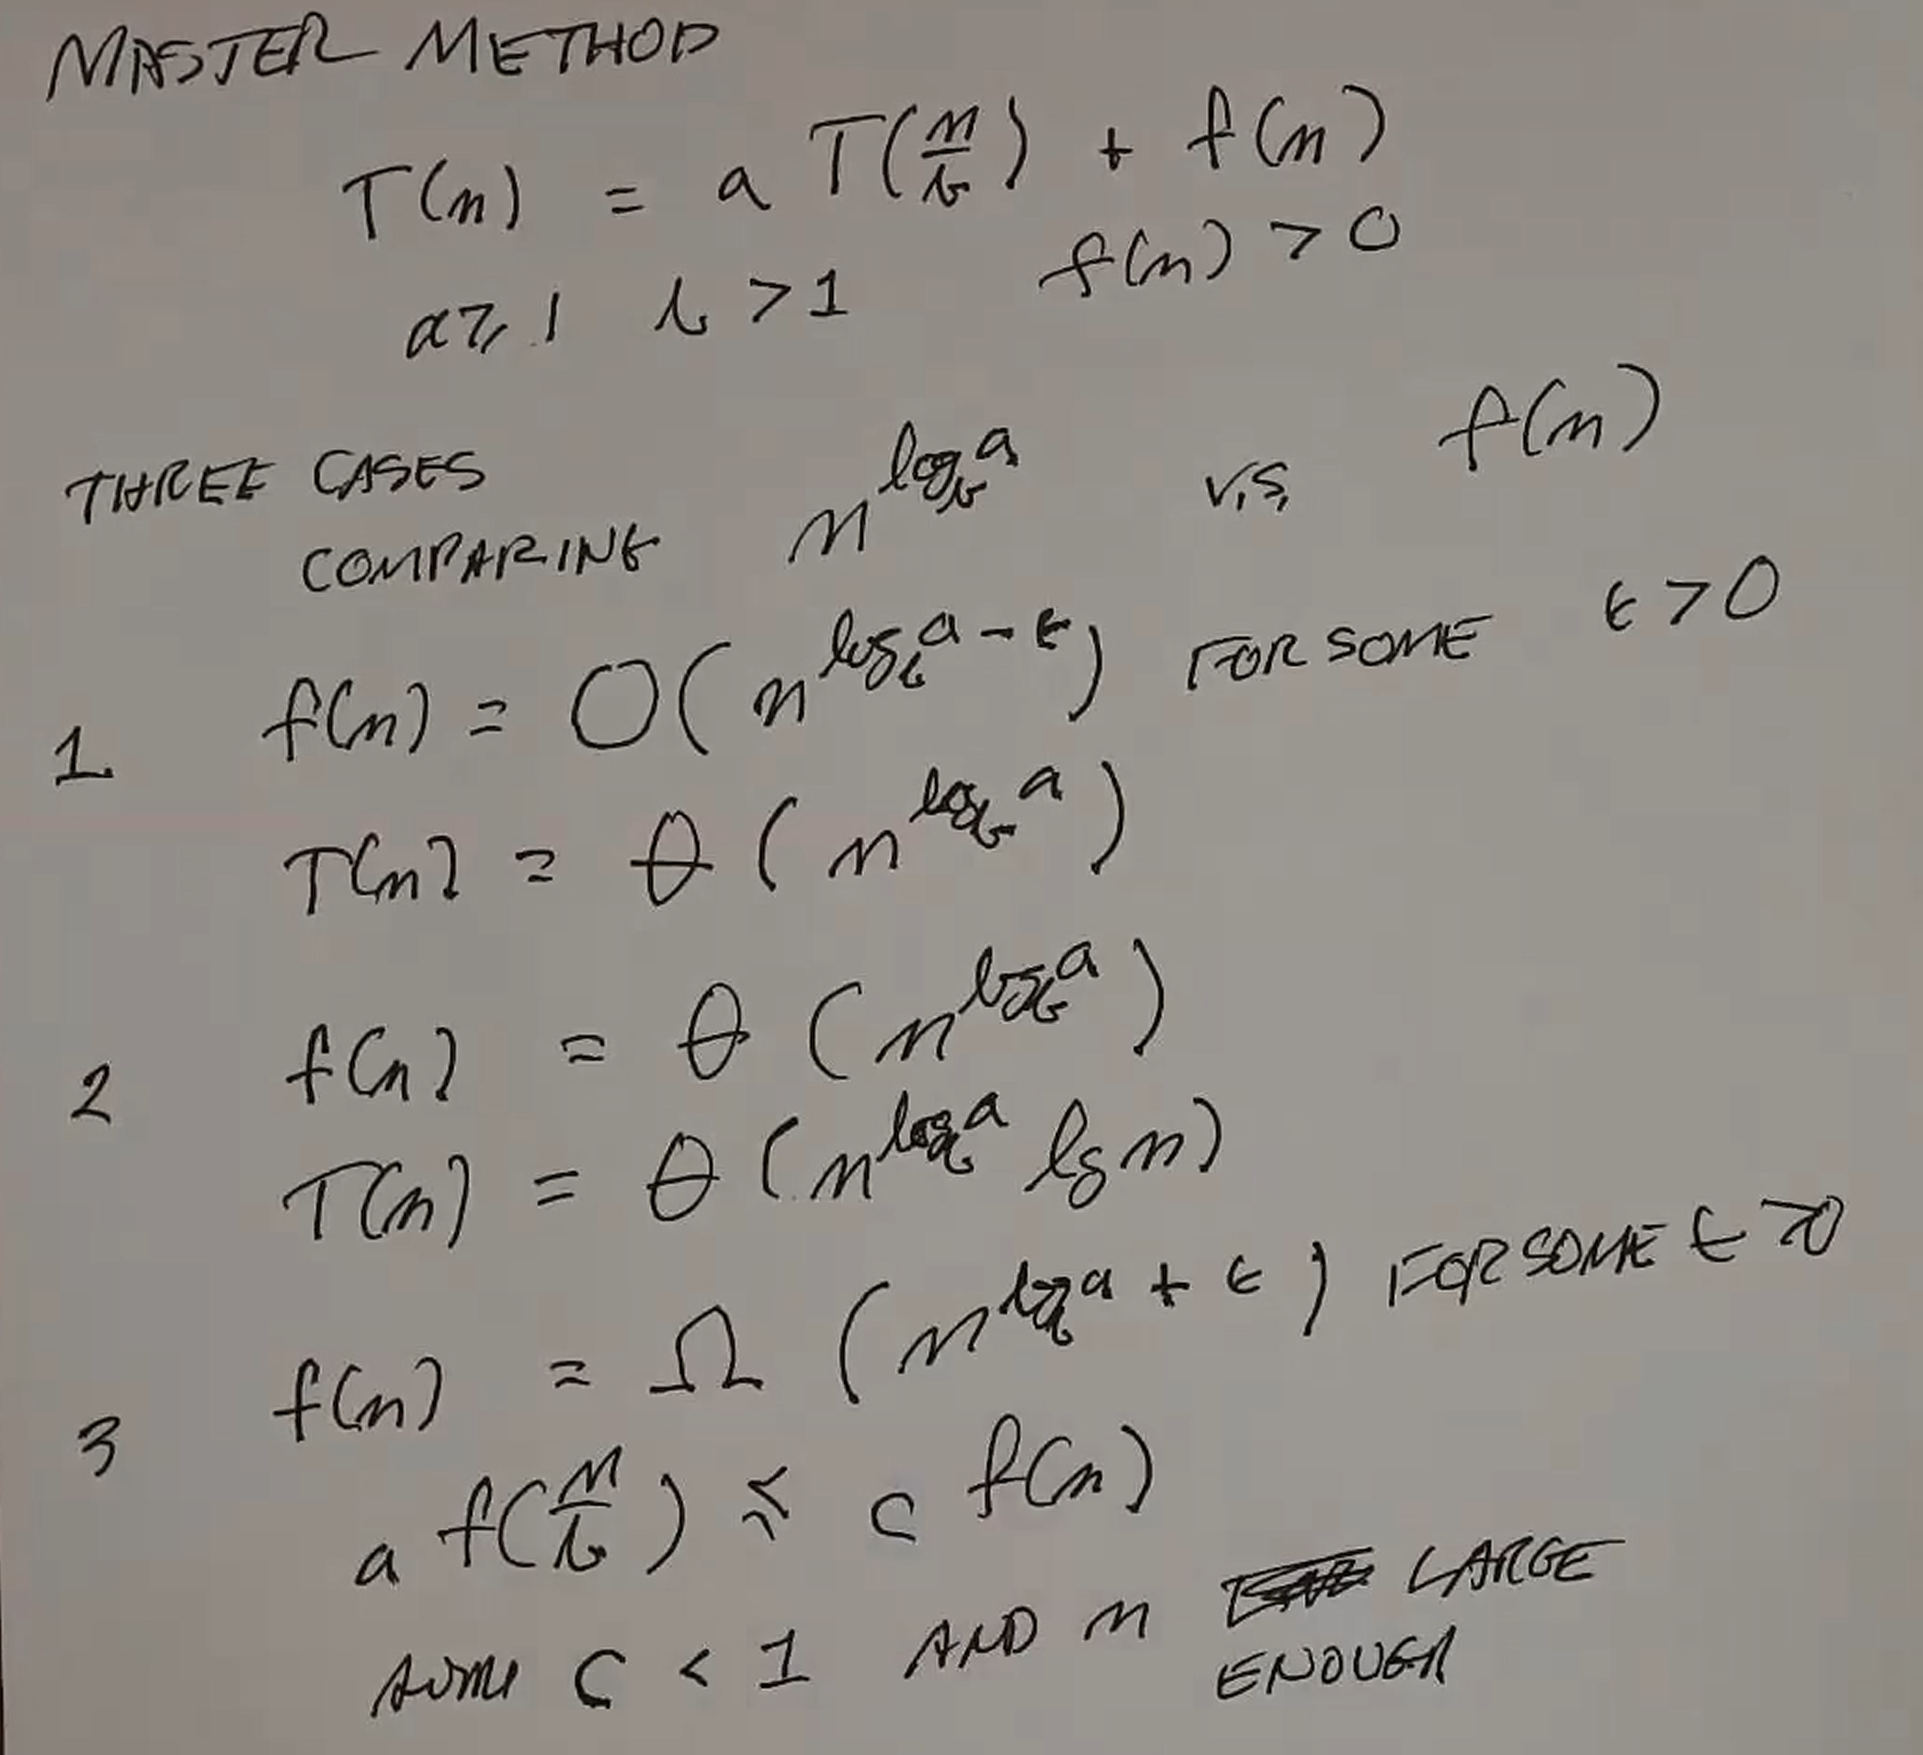 MASTER METHOD
T(n) = a T(n/b) + f(n)
a ≥ 1 b > 1 f(n) > 0
THREE CASES
COMPARING n^(log_b a) V.S. f(n)
1. f(n) = O(n^(log_b a - ε)) FOR SOME ε > 0
T(n) = θ(n^(log_b a))
2 f(n) = θ(n^(log_b a))
T(n) = θ(n^(log_b a) lg n)
3 f(n) = Ω(n^(log_b a + ε)) FOR SOME ε > 0
a f(n/b) ≤ c f(n)
some c < 1 AND n LARGE
ENOUGH